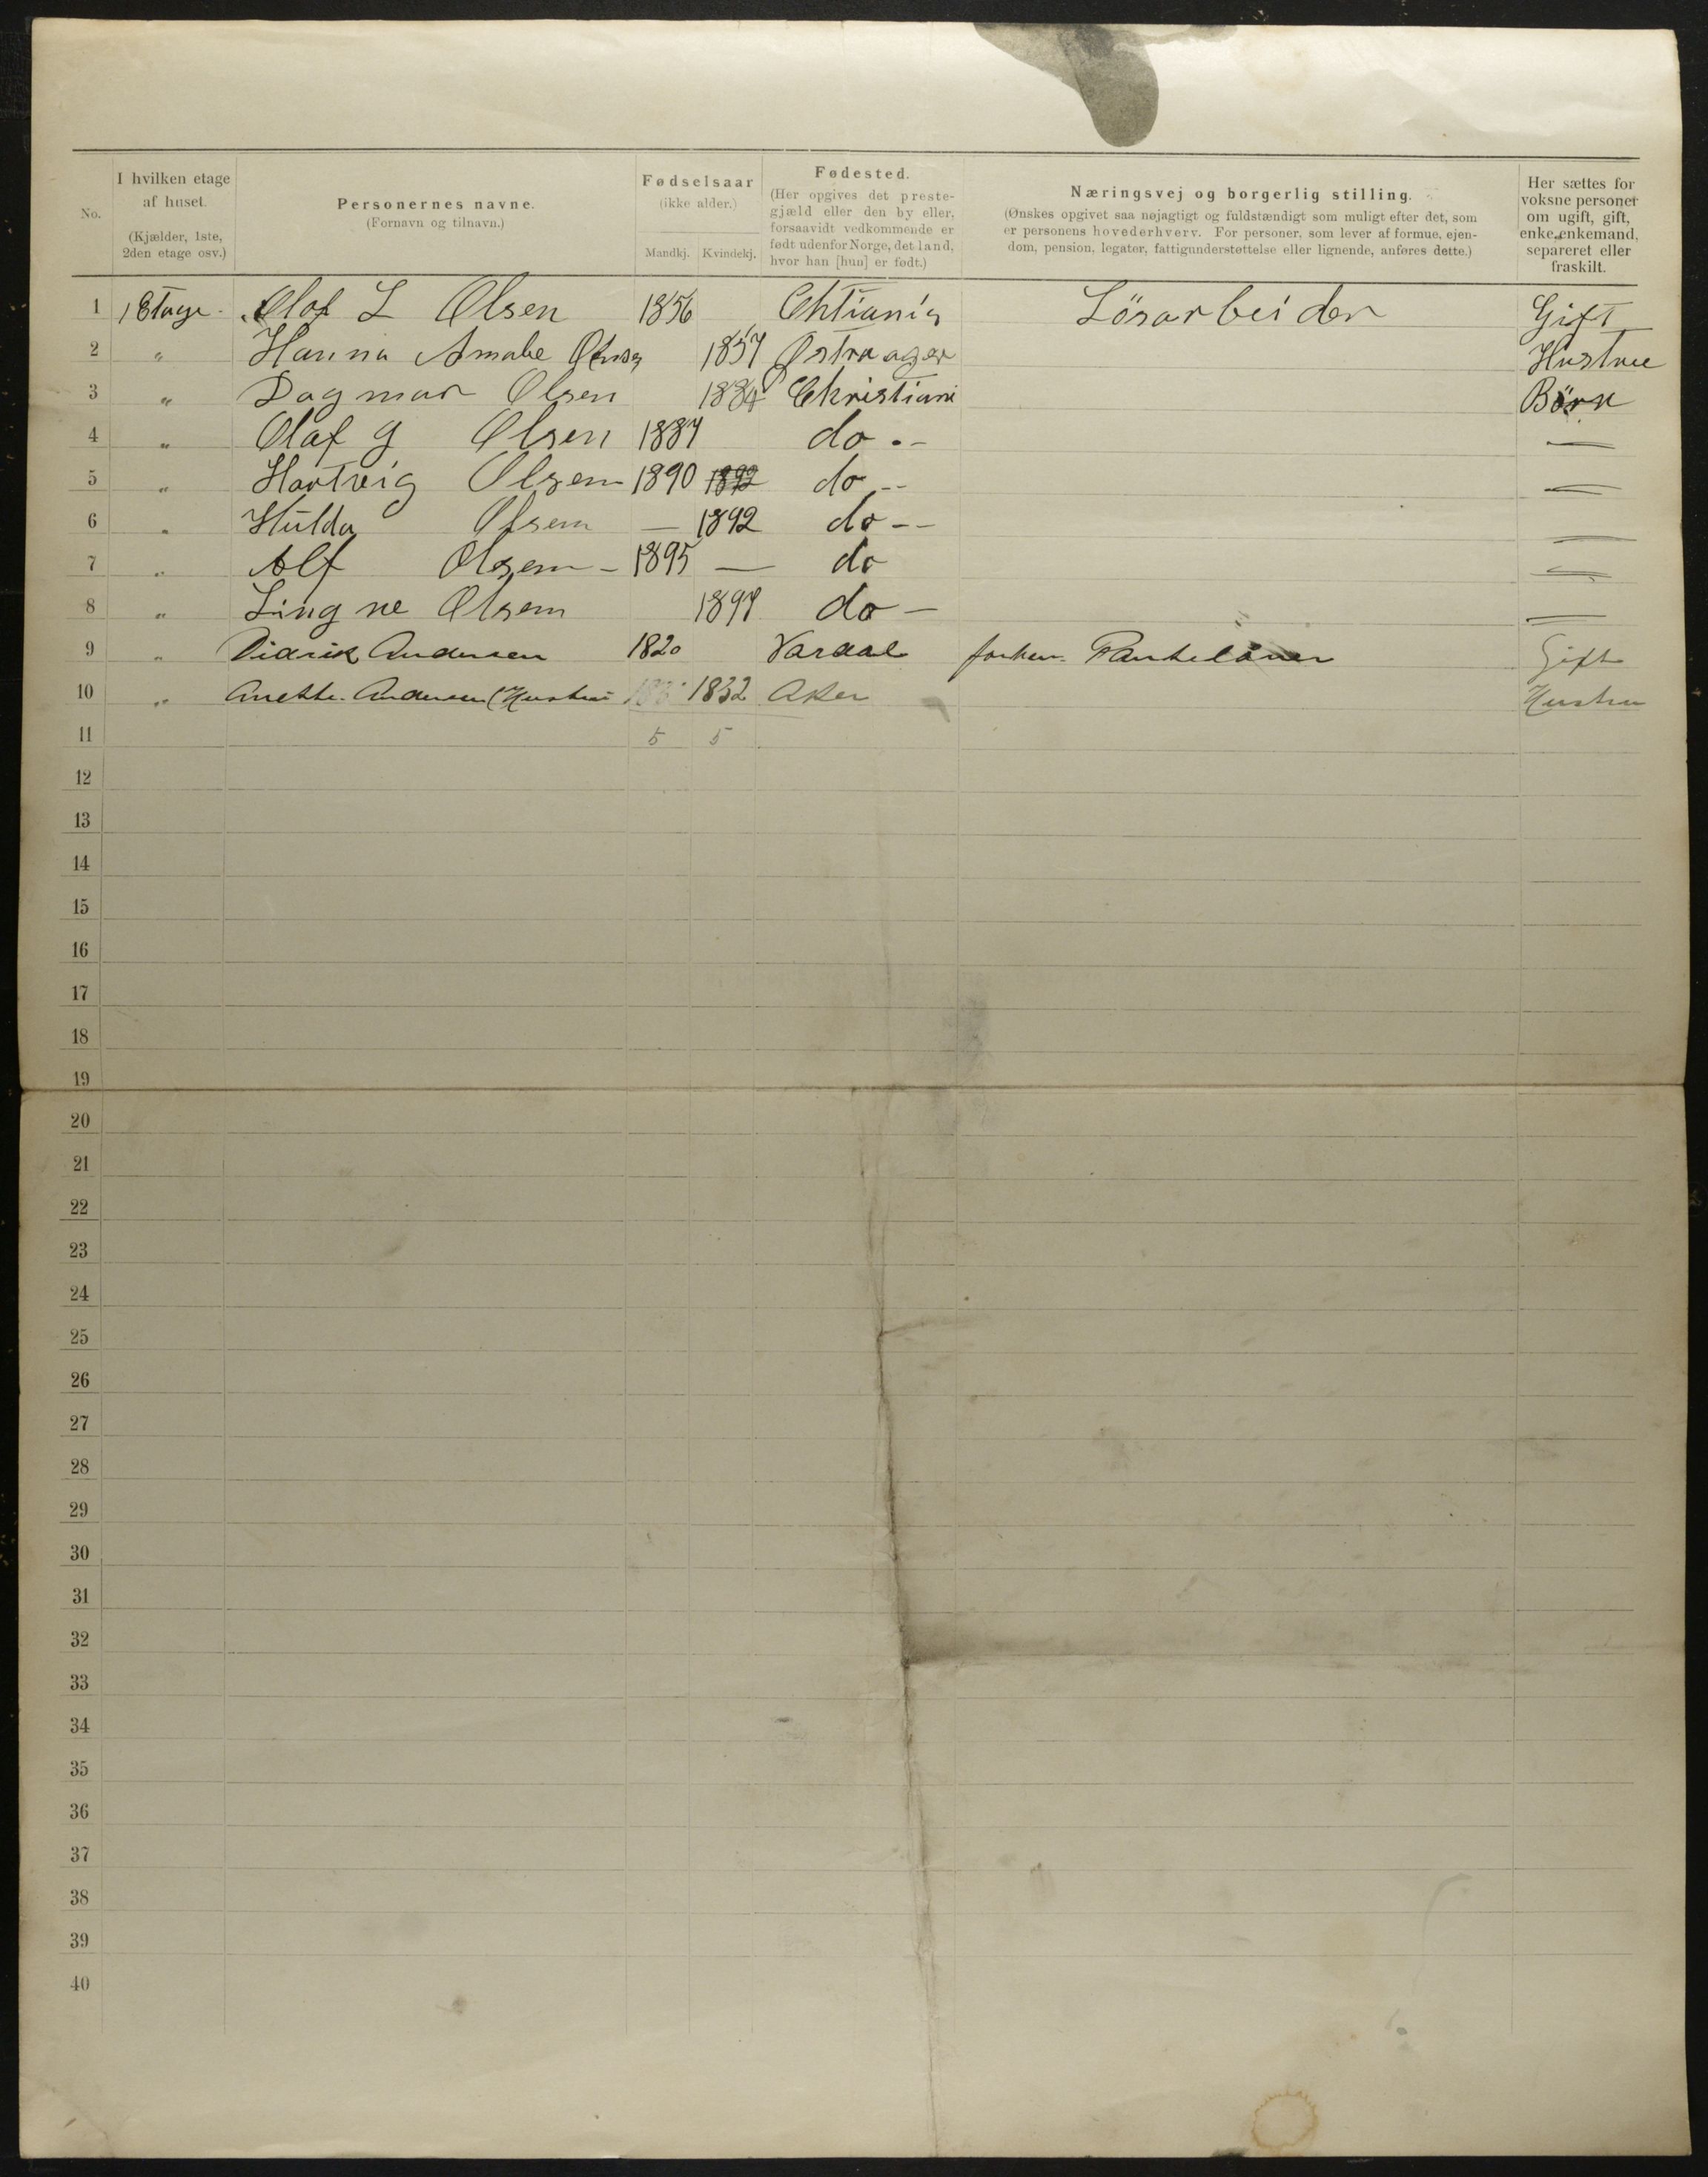 No. I hvilken etage af huset. (Kjælder, 1ste, 2den etage osv.) Personernes navne. (Fornavn og tilnavn.) Fødselsaar (ikke alder.) Mandkj. Kvindekj. Fødested. (Her opgives det prestegjæld eller den by eller, forsaavidt vedkommende er født udenfor Norge, det land, hvor han [hun] er født.) Næringsvej og borgerlig stilling. (Ønskes opgivet saa nøjagtigt og fuldstændigt som muligt efter det, som er personens hovederhverv. For personer, som lever af formue, ejendom, pension, legater, fattigunderstøttelse eller lignende, anføres dette.) Her sættes for voksne personer om ugift, gift, enke, enkemand, separeret eller fraskilt.
1 1 Etage. Olaf L Olsen 1856 Chtiania Lösarbeider Gift
2 " Hanna Amalie Olsen 1857 Østraager Hustru
3 " Dagmar Olsen 1884 Christiani Börn
4 " Olaf G Olsen 1887 do.- —
5 " Hartvig Olsen 1890 1892 do -- —
6 " Hulda Olsem — 1892 do -- —
7 " Alf Olsem - 1895 — do —
8 " Ling ne Olsem 1897 do — —
9 " Didrik Andersen 1820 Vardal Gift
10 " Anette Andersen (Hustru 1832 Aker Hustru
11 5 5
12
13
14
15
16
17
18
19
20
21
22
23
24
25
26
27
28
29
30
31
32
33
34
35
36
37
38
39
40